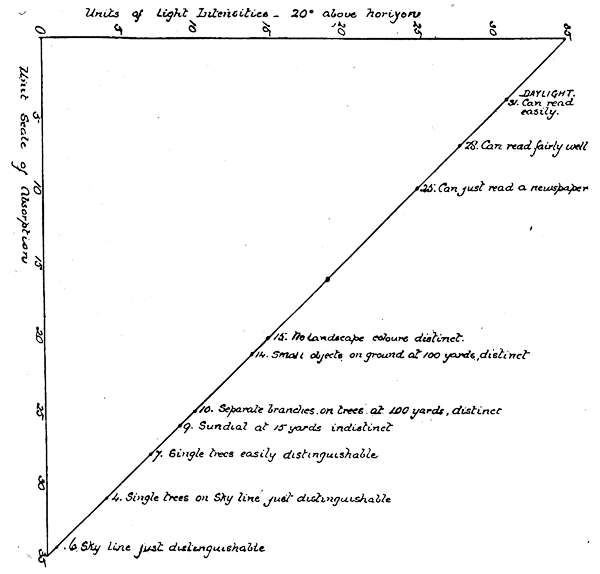 Units of Light Intensities - 20° above horizon
0 5 10 15 20 25 30 35
Unit Scale of Absorption
5 10 15 20 25 30 35
DAYLIGHT.
31. Can read
easily.
28. Can read fairly well
25. Can just read a newspaper
15. No Landscape colours distinct.
14. Small objects on ground at 100 yards, distinct
10. Separate branches, on trees at 100 yards, distinct
9. Sundial at 15 yards indistinct
7. Single trees easily distinguishable
4. Single trees on Sky line just distinguishable
.6. Sky line just distinguishable